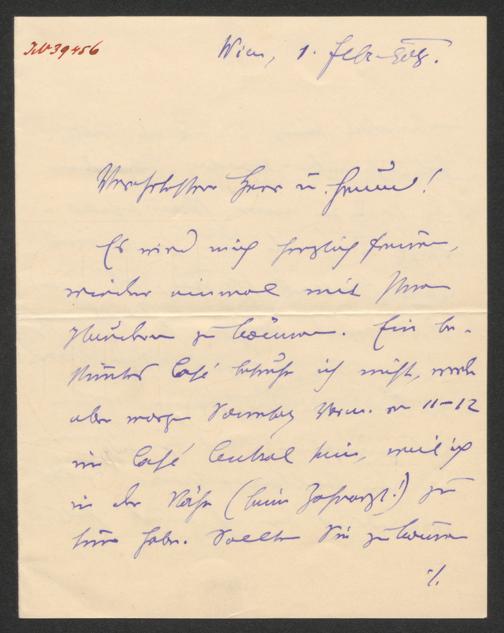 IN 39456
Wien, 1. Febr.
Verehrtester Herr u. Freund!
Es wird mich herzlich freuen,
wieder einmal mit Ihnen
plaudern zu können. Ein be-
stimmtes Café besuche ich nicht, werde
aber morgen Sonntag Vorm. von 11-12
im Café Central sein, weil ich
in der Nähe (beim Zahnarzt!) zu
tun habe. Sollten Sie zu kommen
./.